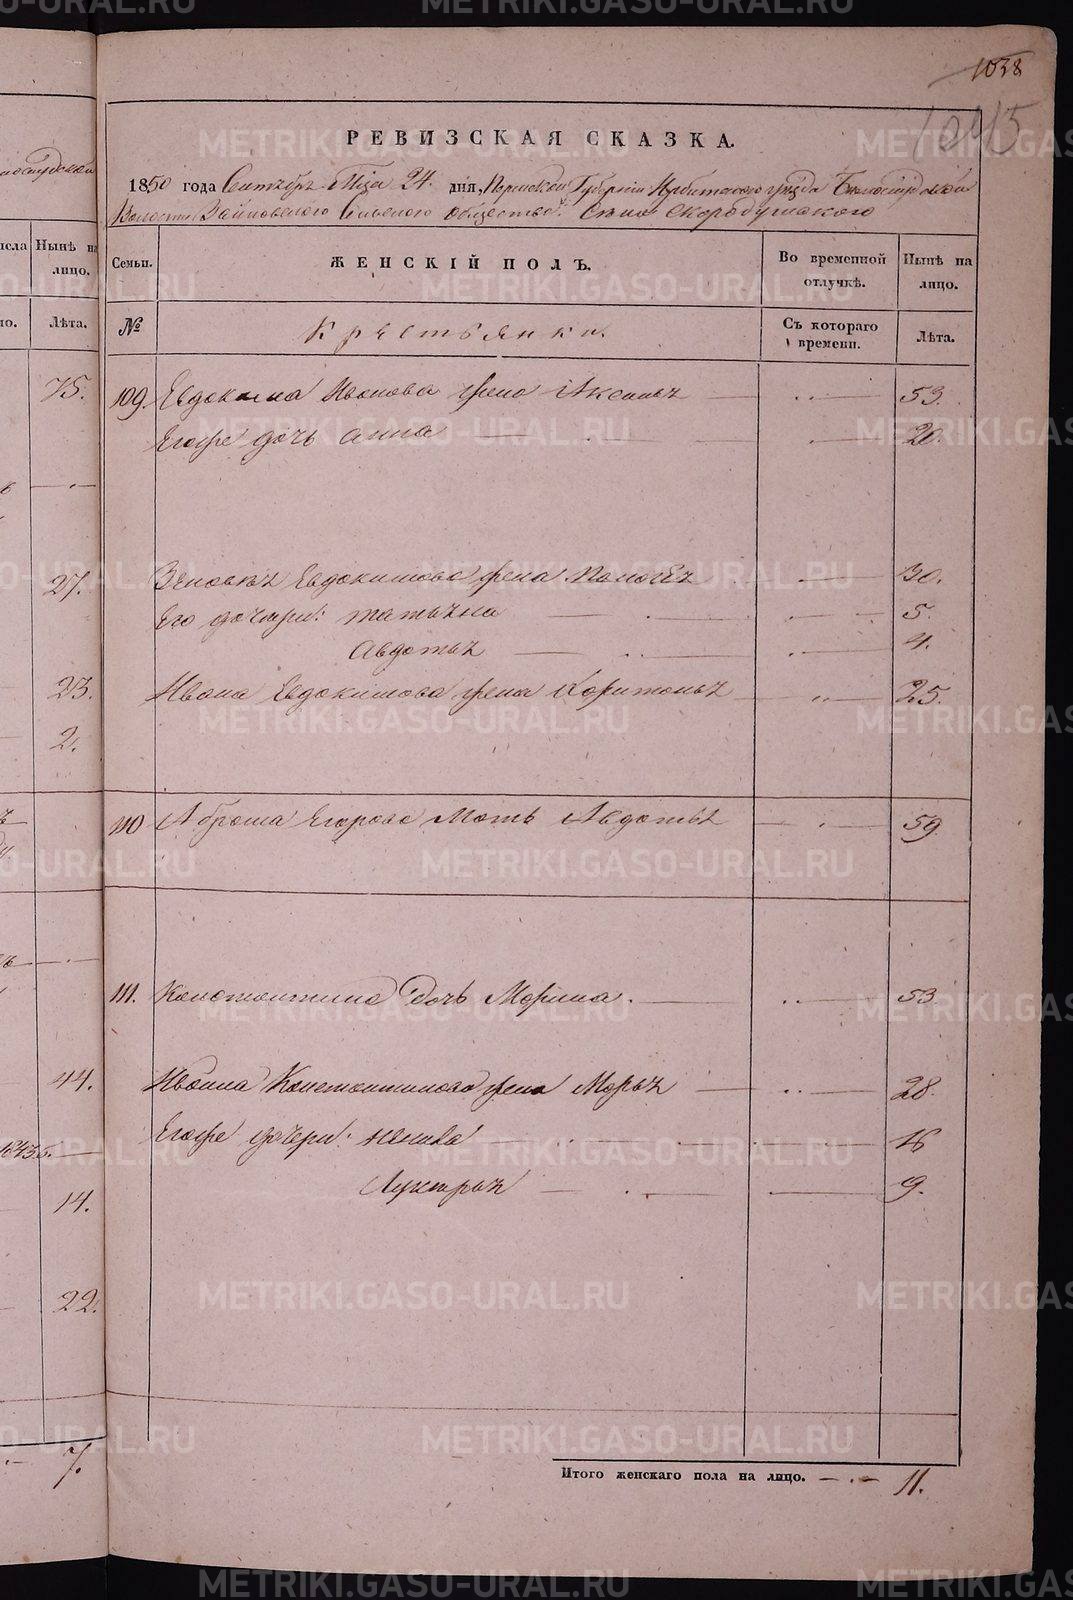 1038
1045
РЕВИЗСКАЯ СКАЗКА.
1850 года Сентября М-ца 24. дня, Пермской Губернiи Ирбитского уезда Белослудской
Волости Зайковского Сельского общества. Села Скородумского
Семьи. ЖЕНСКIЙ ПОЛЪ. Во временной отлучкѣ. Нынѣ на лицо.
№ Крестьянки. Съ котораго времени. Лѣта.
109. Евдокима Иванова жена Аксинья 53.
Егоже дочь Анна 20.
Зеновья Евдокимова жена Палагея 30.
Его дочери: Татьяна 5.
Авдотья 4.
Ивана Евдокимова жена Харитонья 25.
110 Абрама Егорова Мать Авдотья 59.
111. Констонтина Дочь Марина. 53
Ивана Констонтинова жена Марья 28.
Егоже дочери: 16
9.
Итого женскаго пола на лицо. 11.
Нынѣ на лицо.
Лѣта.
75.
27.
23.
2.
44.
14.
22.
7.
METRIKI.GASO-URAL.RU